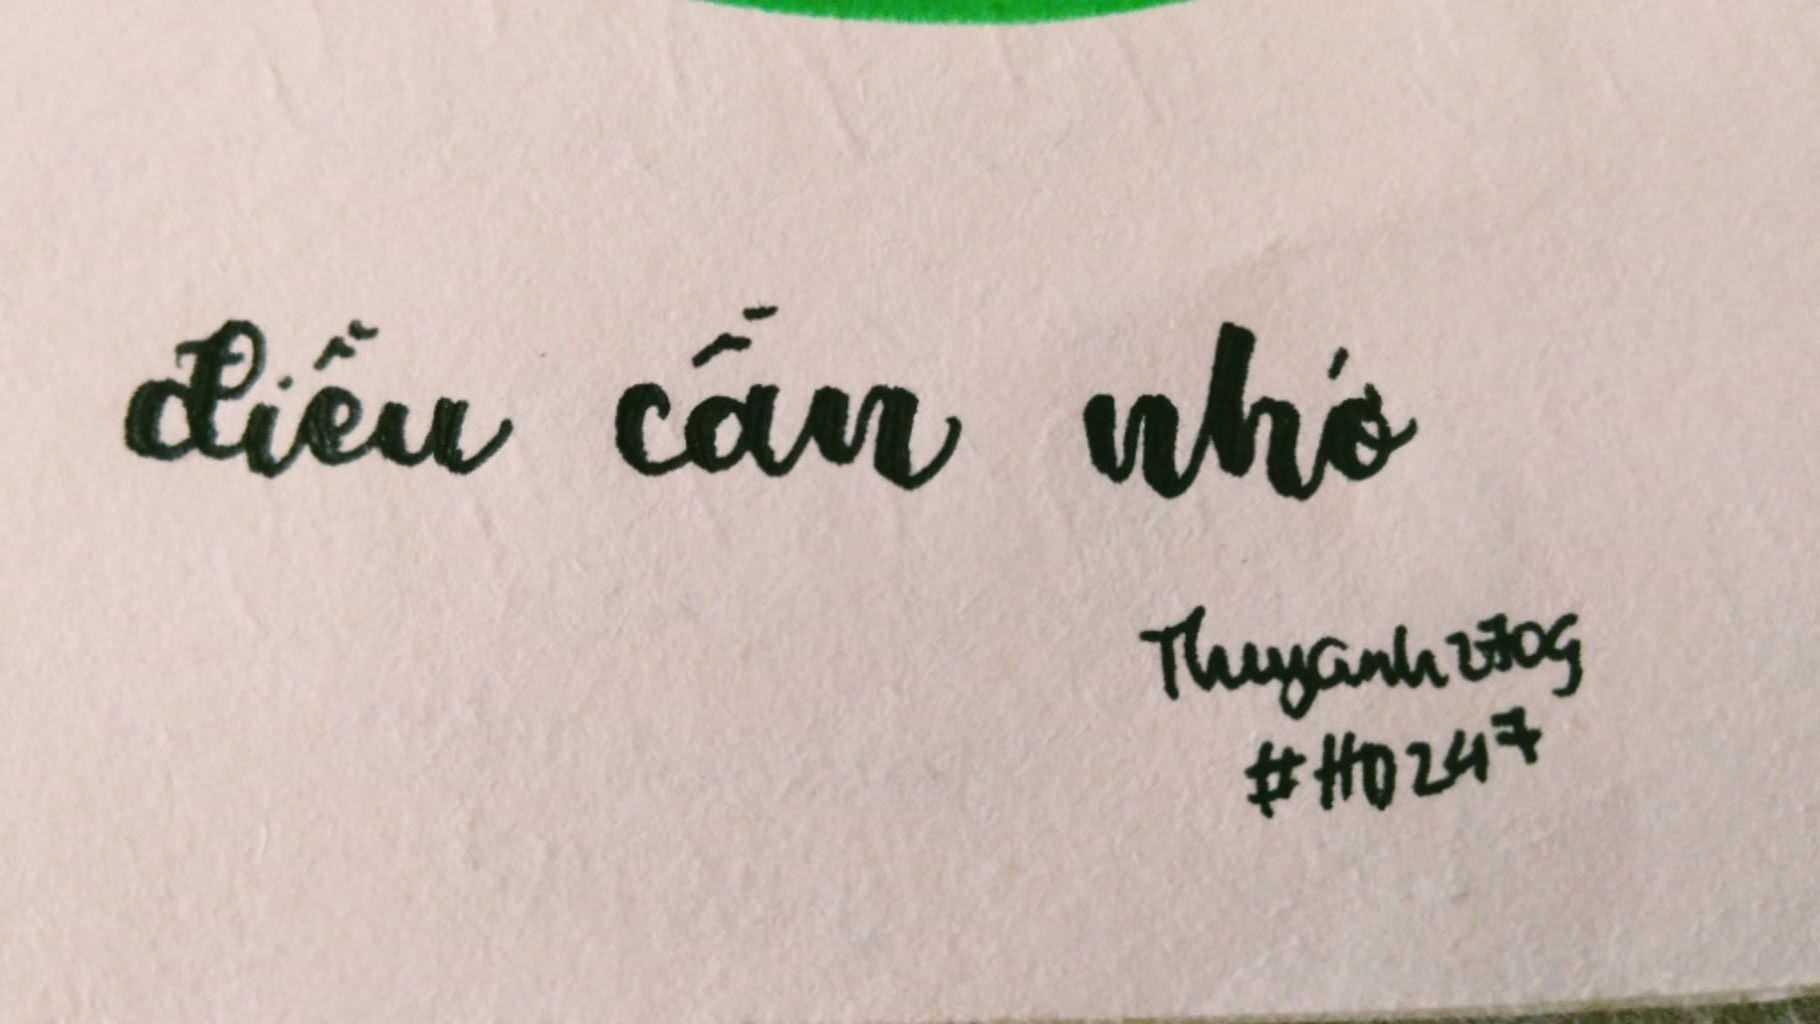 điều cần nhớ
Thuyanh2709
#HD247